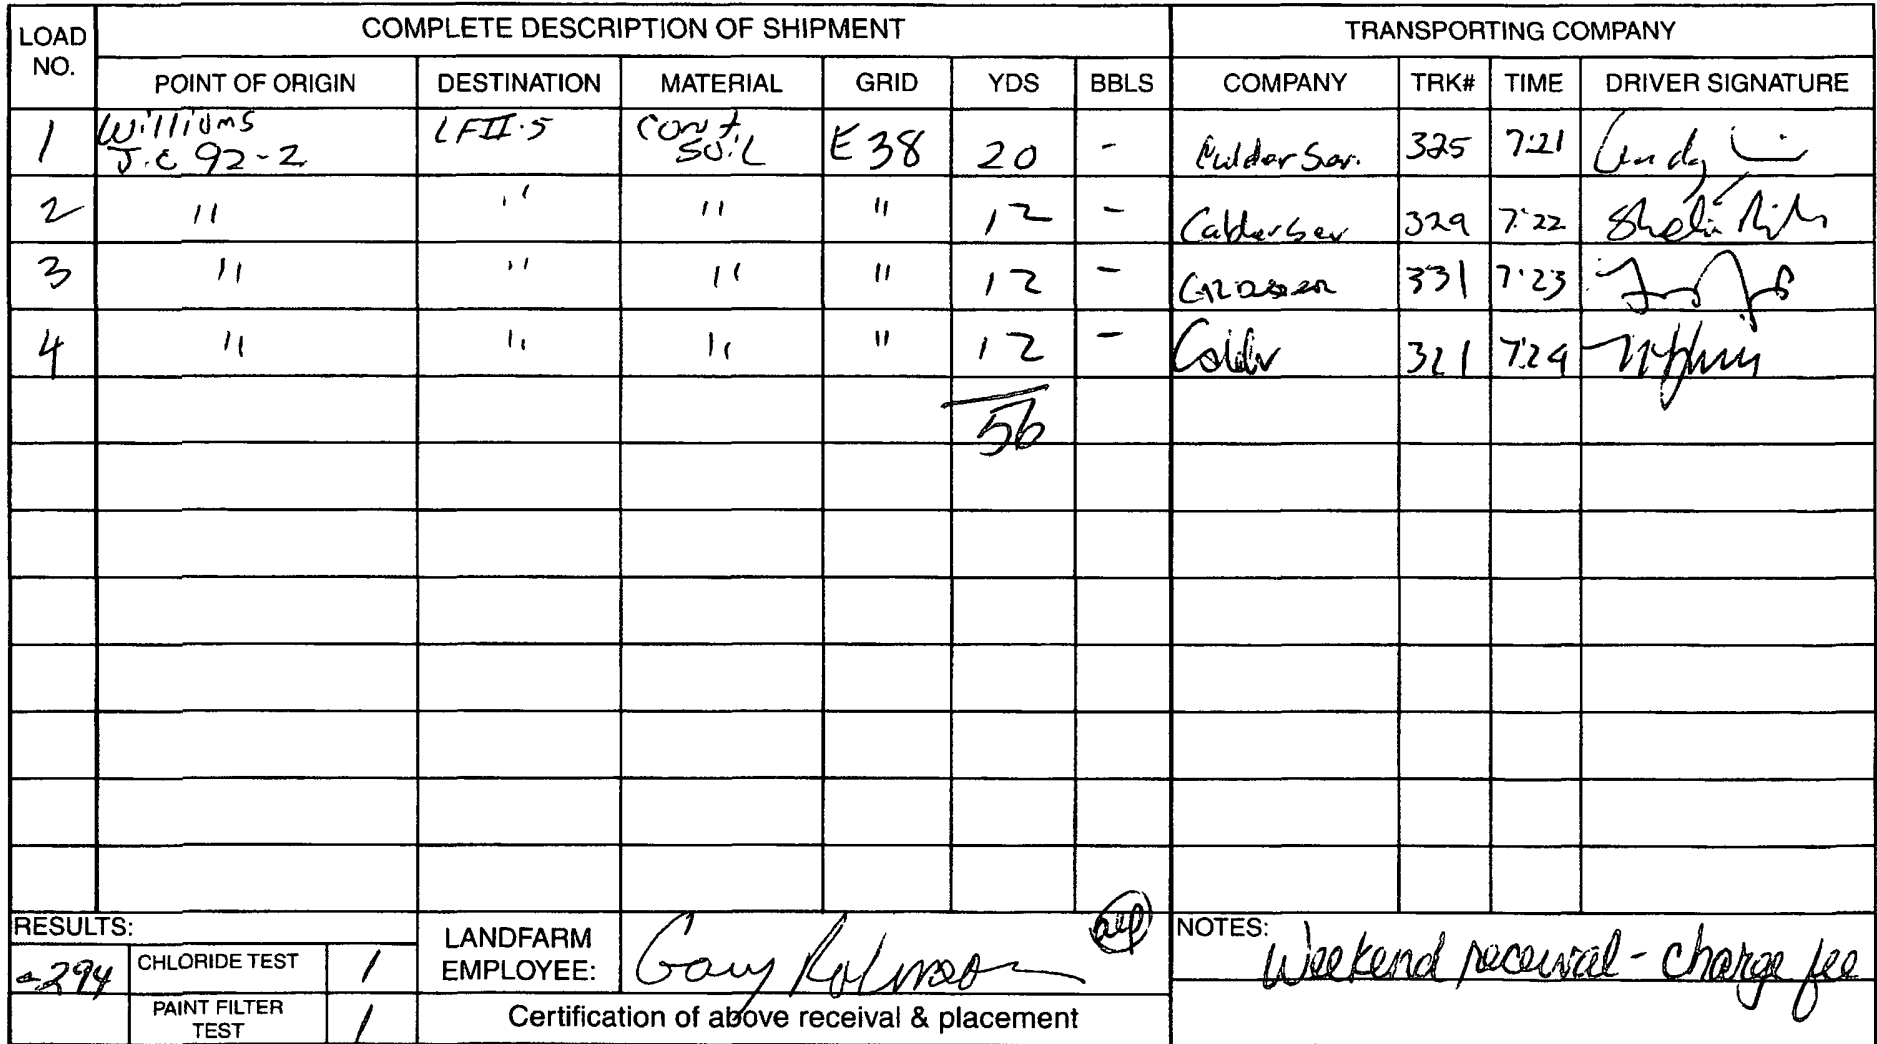 LOAD NO.
COMPLETE DESCRIPTION OF SHIPMENT
TRANSPORTING COMPANY
POINT OF ORIGIN DESTINATION MATERIAL GRID YDS BBLS COMPANY TRK# TIME DRIVER SIGNATURE
1 Williams J.C 92-2 LFII.5 Cont Soil E38 20 - Calder Ser. 325 7:21
2 " " " " 12 - Calder Ser 329 7:22
3 " " " " 12 - 331 7:23
4 " " " " 12 - Calder 321 7:24
56
RESULTS:
-294 CHLORIDE TEST 1
PAINT FILTER TEST 1
LANDFARM EMPLOYEE: Gary Robinson
Certification of above receival & placement
NOTES: Weekend receival - charge fee